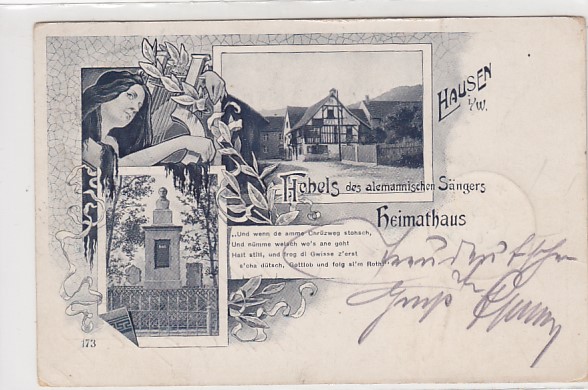 HAUSEN
i/W.
Hebels des alemannischen Sängers
Heimathaus
„Und wenn de amme Chrüzweg stohsch,
Und nümme weisch wo's ane goht
Halt still, und frog di Gwisse z'erst
s'cha dütsch, Gottlob und folg si'm Roth."
Gruß
173